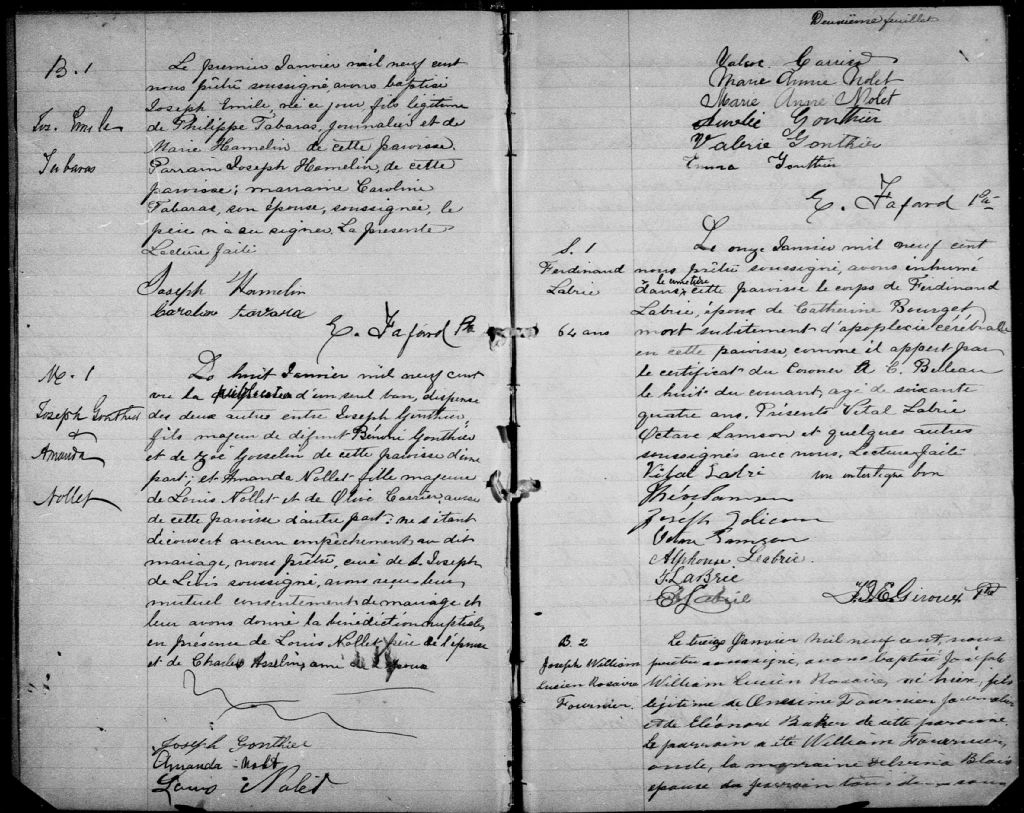 B. 1
Joz. Emile
Tabaras
Le premier Janvier mil neuf cent
nous prêtre soussigné, avons baptisé
Joseph Emile, né ce jour fils légitime
de Philippe Tabaras, journalier et de
Marie Hamelin de cette paroisse.
Parrain Joseph Hamelin, de cette
paroisse; marraine Caroline
Tabaras, son épouse, soussignée, le
père n'a su signer. La présente
Lecture faite
Joseph Hamelin
Caroline
E. Fafard Ptr
M. 1
Joseph Gonthier
Amanda
Nollet
Le huit Janvier mil neuf cent
vu la publication d'un seul ban, dispense
des deux autres entre Joseph Gonthier,
fils majeur de défunt Bénoni Gonthier
et de Zoé Gosselin de cette paroisse d'une
part; et Amanda Nollet fille majeure
de Louis Nollet et de Olive Carrier, aussi
de cette paroisse d'autre part; ne s'étant
découvert aucun empêchement au dit
mariage, nous prêtre, curé de S. Joseph
de Lévis soussigné, avons reçu leur
mutuel consentement de mariage et
leur avons donné la bénédiction nuptiale,
en présence de Louis Nollet père de l'épouse
et de Charles Asselin, ami de l'époux
Joseph Gonthier
Amanda Nolt
Louis Nolet
Deuxième feuillet
Carrier
Marie Annie Nolet
Marie Anne Nolet
Aurelie Gonthier
Valerie Gonthier
Emma Gonthier
E. Fafard Ptr
S. 1
Ferdinand
Labrie
64 ans
Le onze Janvier mil neuf cent
nous prêtre soussigné, avons inhumé
le cimetière
dans cette paroisse le corps de Ferdinand
Labrie, époux de Catherine Bourget,
mort subitement d'apoplexie cérébrale
en cette paroisse, comme il appert par
le certificat du Coroner A. C. Belleau
le huit du courant, agé de soixante
quatre ans. Présents Vital Labrie
Octave Samson et quelques autres
soussignés avec nous, Lecture faite
Vital Labri un interligne bon
Samson
Joseph Jolicoeur
Samson
Alphonse Leabrie.
F. LaBrie
Labrie
J.B.E. Giroux Ptr
B. 2
Joseph William
Lucien Rosaire
Fournier.
Le treize Janvier mil neuf cent, nous
prêtre soussigné, avons baptisé Joseph
William Lucien Rosaire, né hier, fils
légitime de Onesime Fournier journalier
et de Eléonore Baker de cette paroisse.
Le parrain a été William Fournier,
oncle, la marraine Delvina Blais
épouse du parrain tous deux sous